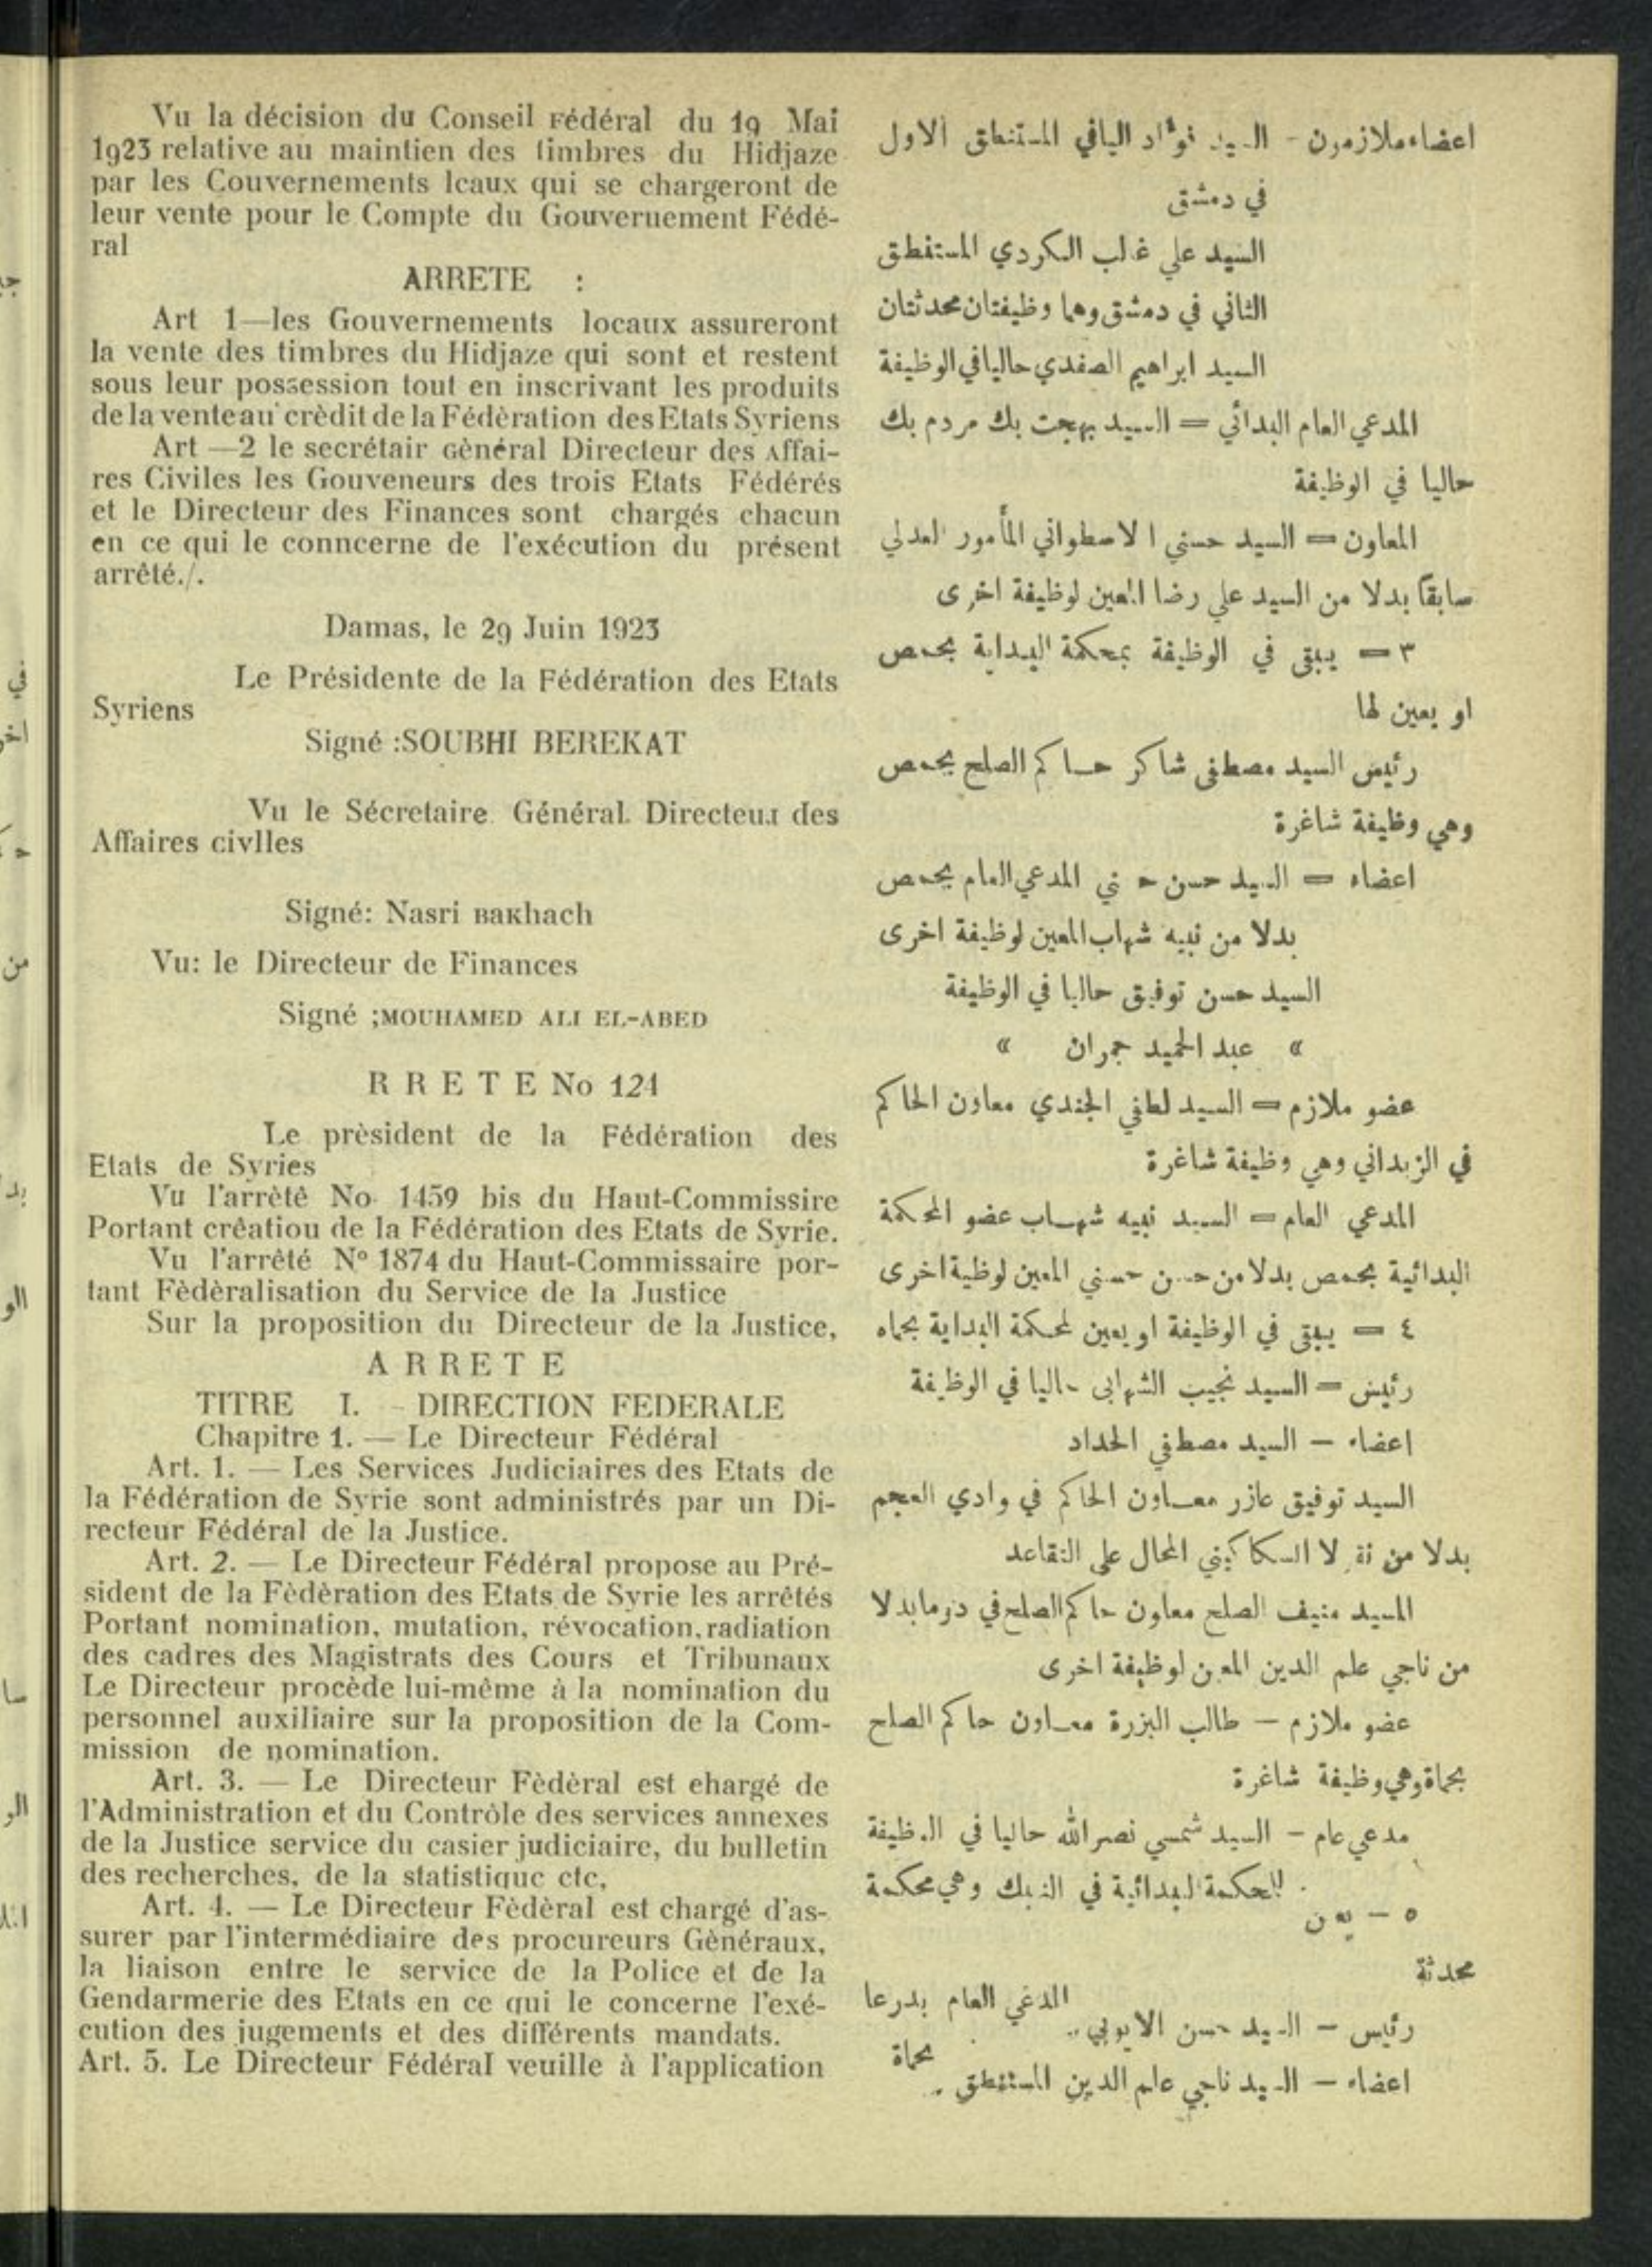 Vu la décision du Conseil Fédéral du 19 Mai
1923 relative au maintien des timbres du Hidjaze
par les Couvernements lcaux qui se chargeront de
leur vente pour le Compte du Gouveruement Fédé-
ral
ARRETE :
Art 1—les Gouvernements locaux assureront
la vente des timbres du Hidjaze qui sont et restent
sous leur possession tout en inscrivant les produits
de la vente au crèdit de la Fédèration des Etats Syriens
Art —2 le secrétair Gènéral Directeur des Affai-
res Civiles les Gouveneurs des trois Etats Fédérés
et le Directeur des Finances sont chargés chacun
en ce qui le conncerne de l'exécution du présent
arrêté./.
Damas, le 29 Juin 1923
Le Présidente de la Fédération des Etats
Syriens
Signé :SOUBHI BEREKAT
Vu le Sécretaire Général. Directeur des
Affaires civlles
Signé: Nasri BaKhach
Vu: le Directeur de Finances
Signé ;MOUHAMED ALI EL-ABED
R R E T E No 121
Le prèsident de la Fédération des
Etats de Syries
Vu l'arrètè No 1459 bis du Haut-Commissire
Portant crêatiou de la Fédération des Etats de Syrie.
Vu l'arrêté N° 1874 du Haut-Commissaire por-
tant Fèdèralisation du Service de la Justice
Sur la proposition du Directeur de la Justice,
A R R E T E
TITRE I. - DIRECTION FEDERALE
Chapitre 1. — Le Directeur Fédéral
Art. 1. — Les Services Judiciaires des Etats de
la Fédération de Syrie sont administrés par un Di-
recteur Fédéral de la Justice.
Art. 2. — Le Directeur Fédéral propose au Pré-
sident de la Fèdèration des Etats de Syrie les arrêtés
Portant nomination, mutation, révocation, radiation
des cadres des Magistrats des Cours et Tribunaux
Le Directeur procède lui-même à la nomination du
personnel auxiliaire sur la proposition de la Com-
mission de nomination.
Art. 3. — Le Directeur Fèdèral est ehargé de
l'Administration et du Contrôle des services annexes
de la Justice service du casier judiciaire, du bulletin
des recherches, de la statistique etc,
Art. 4. — Le Directeur Fèdèral est chargé d'as-
surer par l'intermédiaire des procureurs Gènéraux,
la liaison entre le service de la Police et de la
Gendarmerie des Etats en ce qui le concerne l'exé-
cution des jugements et des différents mandats.
Art. 5. Le Directeur Fédéral veuille à l'application
اعضاء ملازمون - السيد فؤاد اليافي المستنطق الاول
في دمشق
السيد علي غالب الكردي المستنطق
الثاني في دمشق وهما وظيفتان محدثتان
السيد ابراهيم الصفدي حاليا في الوظيفة
المدعي العام البدائي = السيد بهجت بك مردم بك
حاليا في الوظيفة
المعاون = السيد حسني الاسطواني المأمور العدلي
سابقاً بدلا من السيد علي رضا المعين لوظيفة اخرى
٣ = يبقى في الوظيفة بمحكمة البداية بحمص
او يعين لها
رئيس السيد مصطفى شاكر حاكم الصلح بحمص
وهي وظيفة شاغرة
اعضاء = السيد حسن حسني المدعي العام بحمص
بدلا من نبيه شهاب المعين لوظيفة اخرى
السيد حسن توفيق حاليا في الوظيفة
« عبد الحميد جمران «
عضو ملازم = السيد لطفي الجندي معاون الحاكم
في الزبداني وهي وظيفة شاغرة
المدعي العام = السيد نبيه شهاب عضو المحكمة
البدائية بحمص بدلا من حسن حسني المعين لوظيفة اخرى
٤ = يبقى في الوظيفة او يعين لمحكمة البداية بحماه
رئيس = السيد نجيب الشهابي حاليا في الوظيفة
اعضاء – السيد مصطفي الحداد
السيد توفيق عازر معاون الحاكم في وادي العجم
بدلا من نقولا السكاكيني المحال على التقاعد
السيد منيف الصلح معاون حاكم الصلح في دوما بدلا
من ناجي علم الدين المعين لوظيفة اخرى
عضو ملازم – طالب البزرة معاون حاكم الصلح
بحماة وهي وظيفة شاغرة
مدعي عام – السيد شمسي نصر الله حاليا في الوظيفة
٥ – يعين للمحكمة البدائية في النبك وهي محكمة
محدثة
رئيس – السيد حسن الايوبي المدعي العام بدرعا
اعضاء – السيد ناجي علم الدين المستنطق بحماة